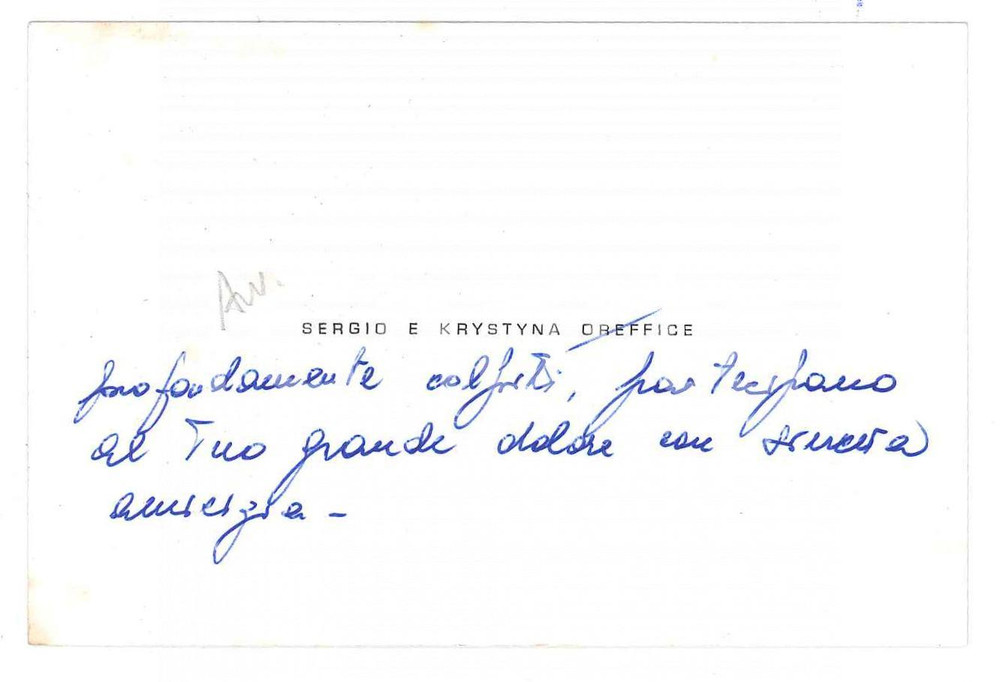 Av.
SERGIO E KRYSTYNA OREFFICE
profondamente colpiti, partecipano
al Tuo grande dolore con sincera
amicizia -